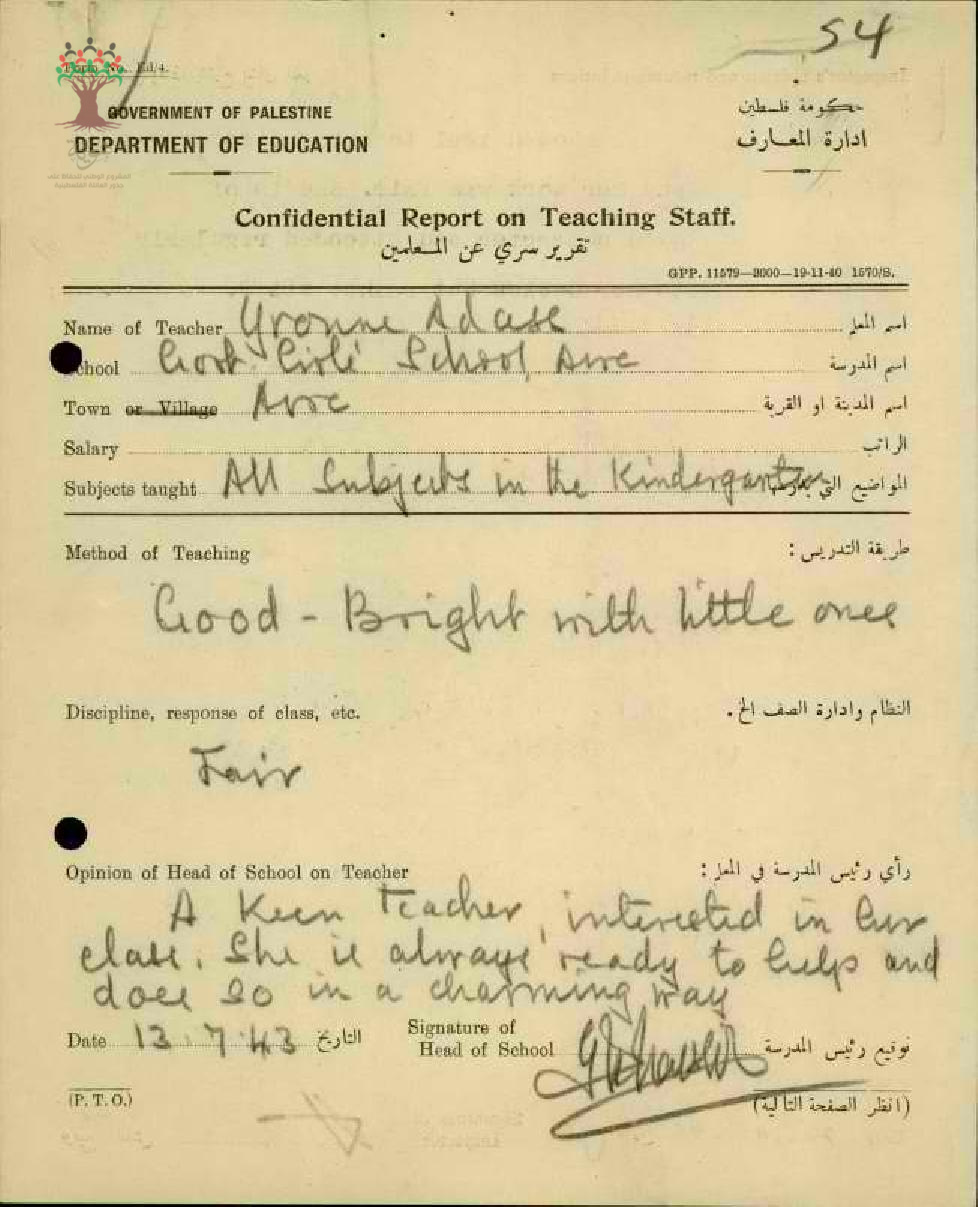 54
Form No. Ed/4.
GOVERNMENT OF PALESTINE
حكومة فلسطين
DEPARTMENT OF EDUCATION
ادارة المعارف
Confidential Report on Teaching Staff.
تقرير سري عن المعلمين
GPP. 11579—3000—19-11-40 1570/S.
Name of Teacher Yvonne Adase اسم المعلم
School Govt. Girls' School, Acre اسم المدرسة
Town or Village Acre اسم المدينة او القرية
Salary الراتب
Subjects taught All Subjects in the Kindergarten المواضيع التي يدرسها
Method of Teaching طريقة التدريس :
Good - Bright with little ones
Discipline, response of class, etc. النظام وادارة الصف الخ .
Fair
Opinion of Head of School on Teacher رأي رئيس المدرسة في المعلم :
A Keen Teacher, interested in her
class. She is always ready to help and
does so in a charming way
Date 13.7.43 التاريخ Signature of Head of School توقيع رئيس المدرسة
(P. T. O.) (انظر الصفحة التالية)